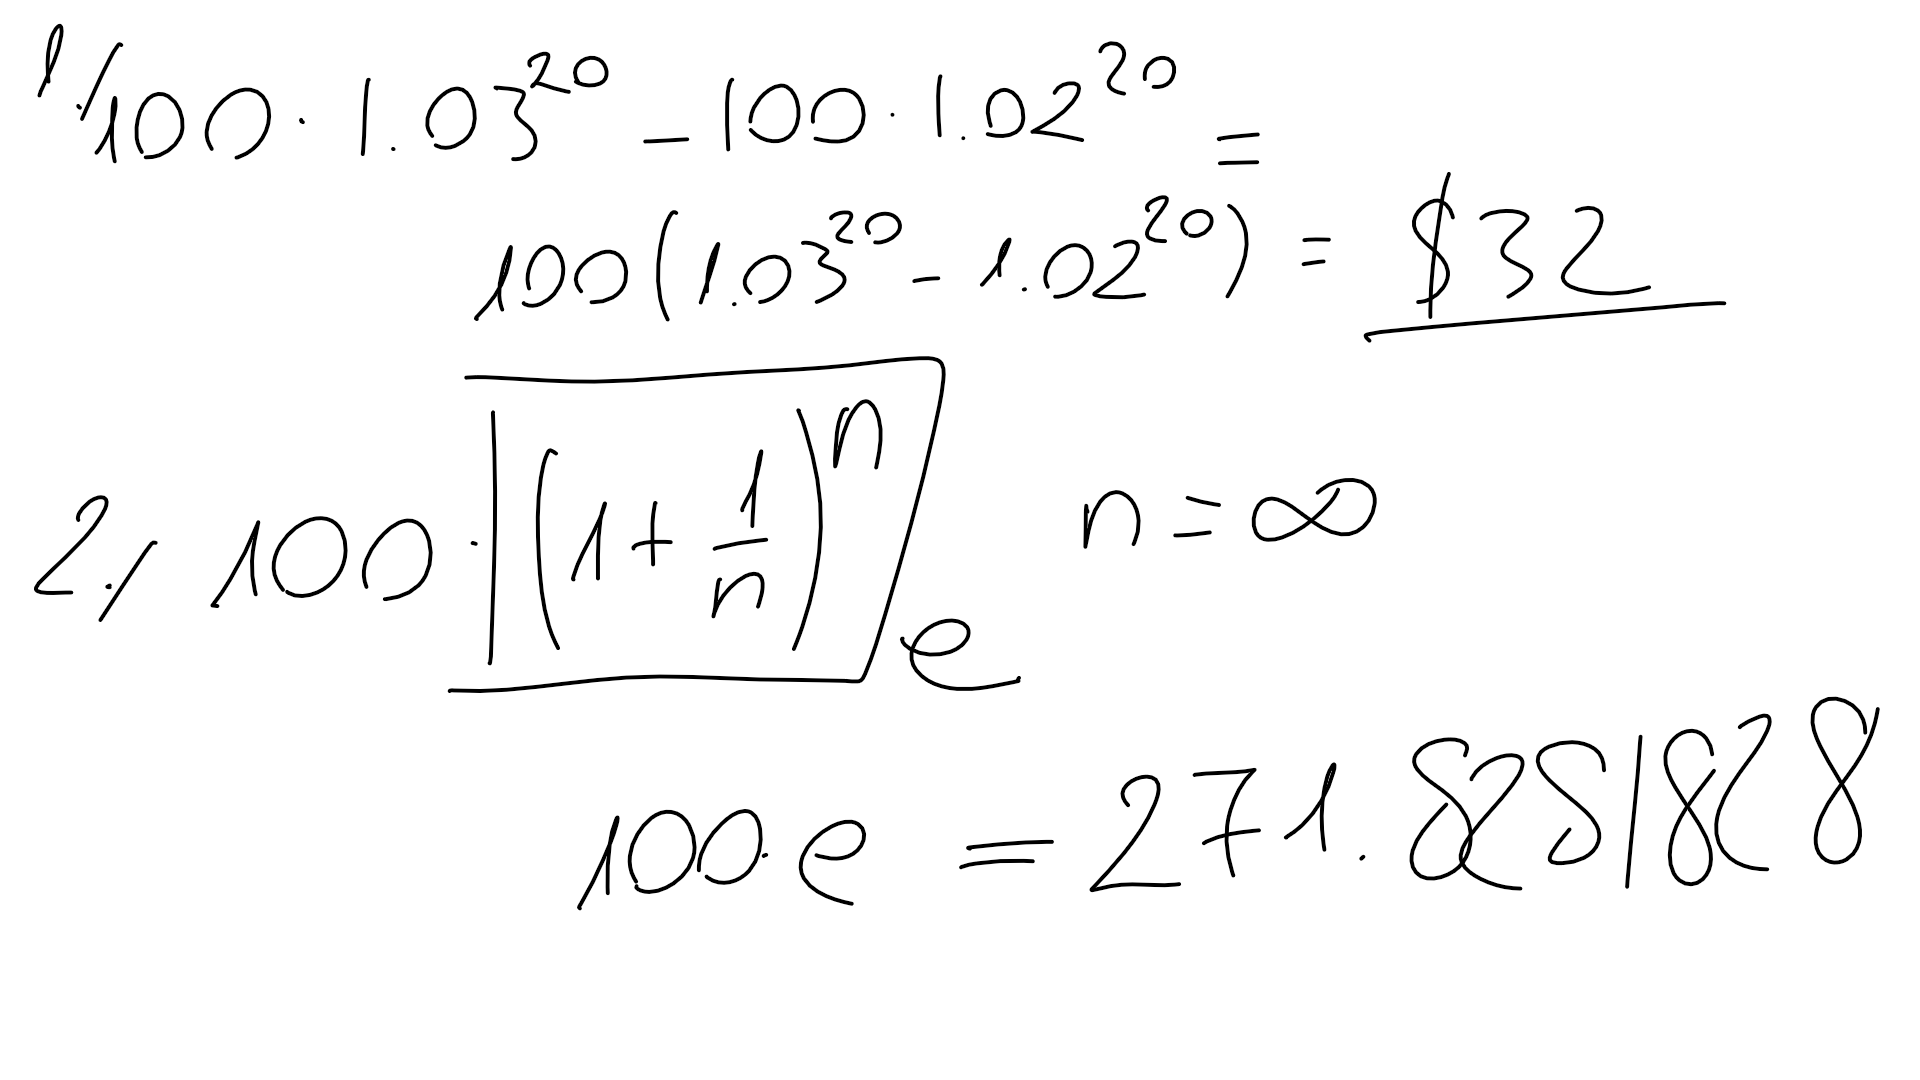 1./ 100 · 1.03^20 - 100 · 1.02^20 =
100(1.03^20 - 1.02^20) = $32
2./ 100 · (1 + 1/n)^n e n = ∞
100·e = 271.8281828